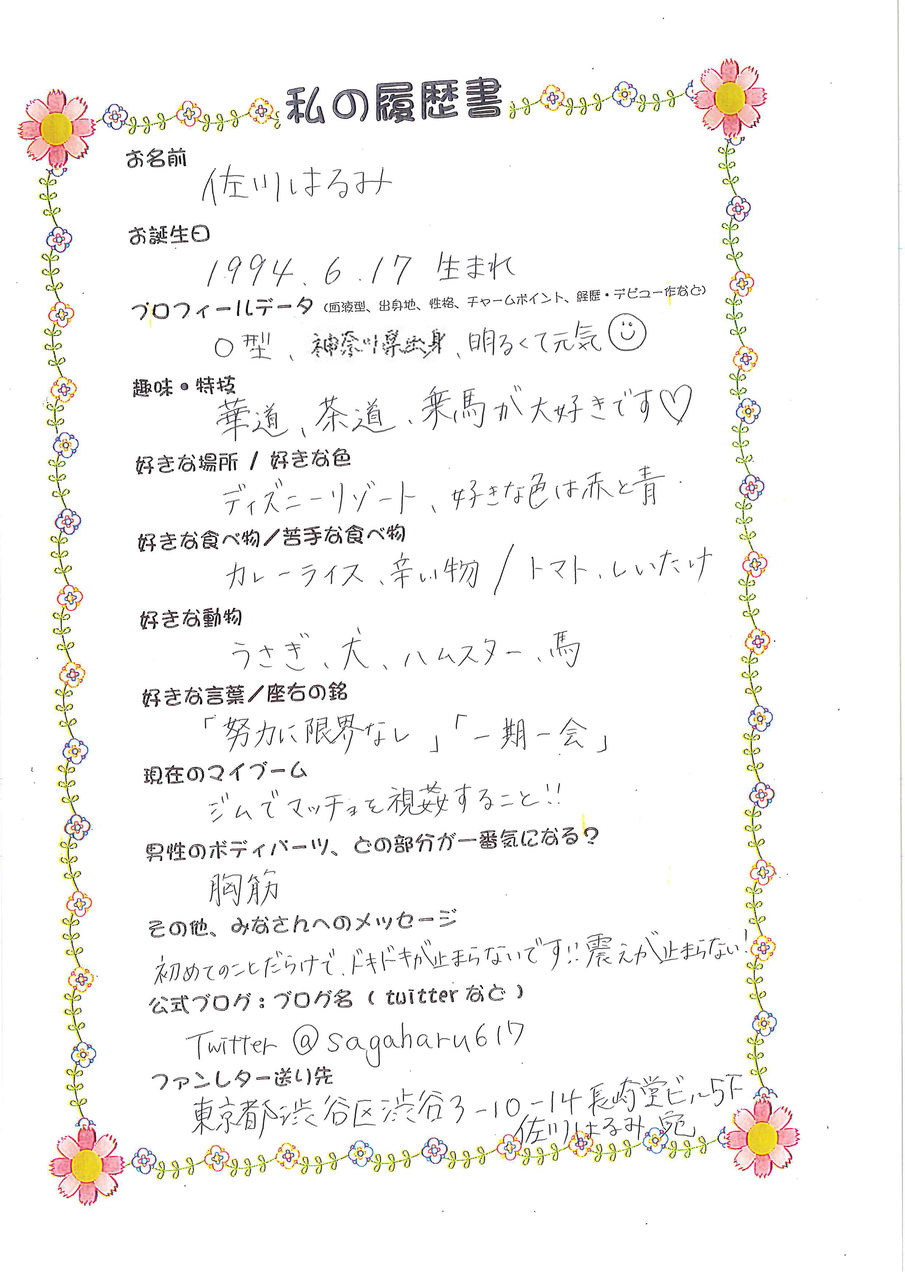 私の履歴書
お名前
佐川はるみ
お誕生日
1994.6.17 生まれ
プロフィールデータ（血液型、出身地、性格、チャームポイント、経歴・デビュー作など）
O型、神奈川県出身、明るくて元気
趣味・特技
華道、茶道、乗馬が大好きです♡
好きな場所 / 好きな色
ディズニーリゾート、好きな色は赤と青.
好きな食べ物／苦手な食べ物
カレーライス、辛い物 / トマト、しいたけ
好きな動物
うさぎ、犬、ハムスター、馬
好きな言葉／座右の銘
「努力に限界なし」「一期一会」
現在のマイブーム
ジムでマッチョを視姦すること!!
男性のボディパーツ、どの部分が一番気になる？
胸筋
その他、みなさんへのメッセージ
初めてのことだらけで、ドキドキが止まらないです!!震えが止まらない!
公式ブログ：ブログ名（twitterなど）
Twitter @sagaharu617
ファンレター送り先
東京都渋谷区渋谷3-10-14長崎堂ビル5F
佐川はるみ 宛